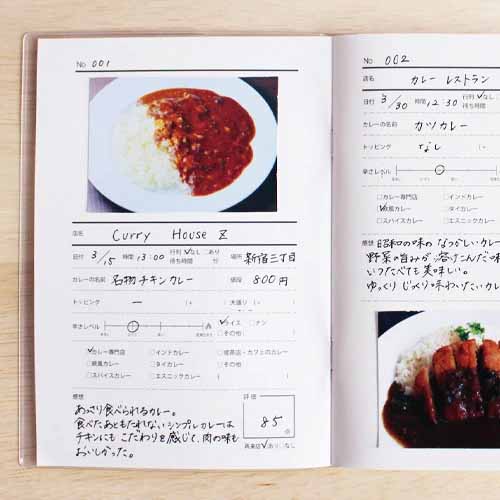 No 001
店名 Curry House Z
日付 3/15 時間 13:00 行列 ✓なし □あり 待ち時間 分 場所 新宿三丁目
カレーの名前 名物チキンカレー 値段 800円
トッピング ー (+ □大盛り (+
辛さレベル ✓ライス □ナン □その他(
✓カレー専門店 □インドカレー □喫茶店・カフェのカレー
□欧風カレー □タイカレー □その他
□スパイスカレー □エスニックカレー (
感想 評価
あっさり食べられるカレー。
食べたあともたれないシンプルカレーは
チキンにもこだわりを感じて、肉の味も
おいしかった。
85点
再来店 ✓あり □なし
No 002
店名 カレー レストラン
日付 3/30 時間 12:30 行列 ✓なし 待ち時間
カレーの名前 カツカレー
トッピング なし
辛さレベル
□カレー専門店 □インドカレー
✓欧風カレー □タイカレー
□スパイスカレー □エスニックカレー
感想
昭和の味のなつかしいカレー
野菜の旨みが溶けこんだ味
いつたべても美味しい。
ゆっくりじっくり味わいたいカレ